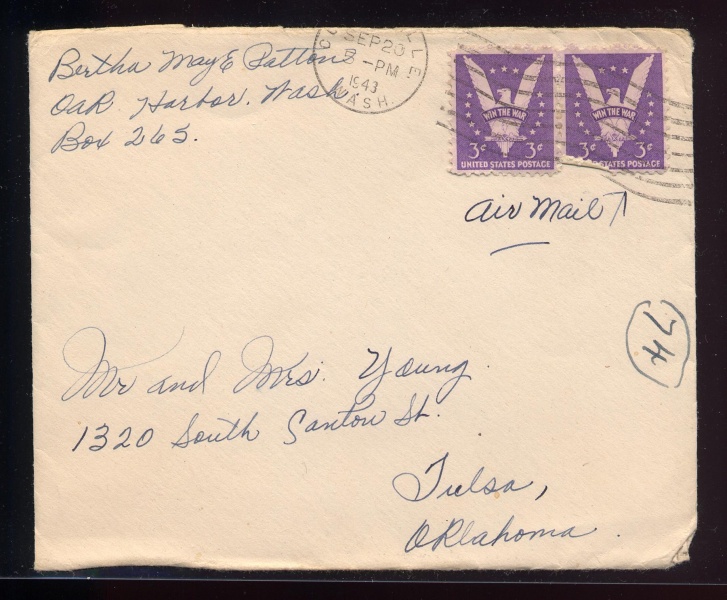 Bertha Maye Patton
Oak Harbor, Wash.
Box 265.
SEP 20
5 - PM
1943
WASH.
WIN THE WAR
3¢ 3¢
UNITED STATES POSTAGE
WIN THE WAR
3¢ 3¢
STATES POSTAGE
Air Mail
74
Mr and Mrs. Young
1320 South Canton St.
Tulsa,
Oklahoma.